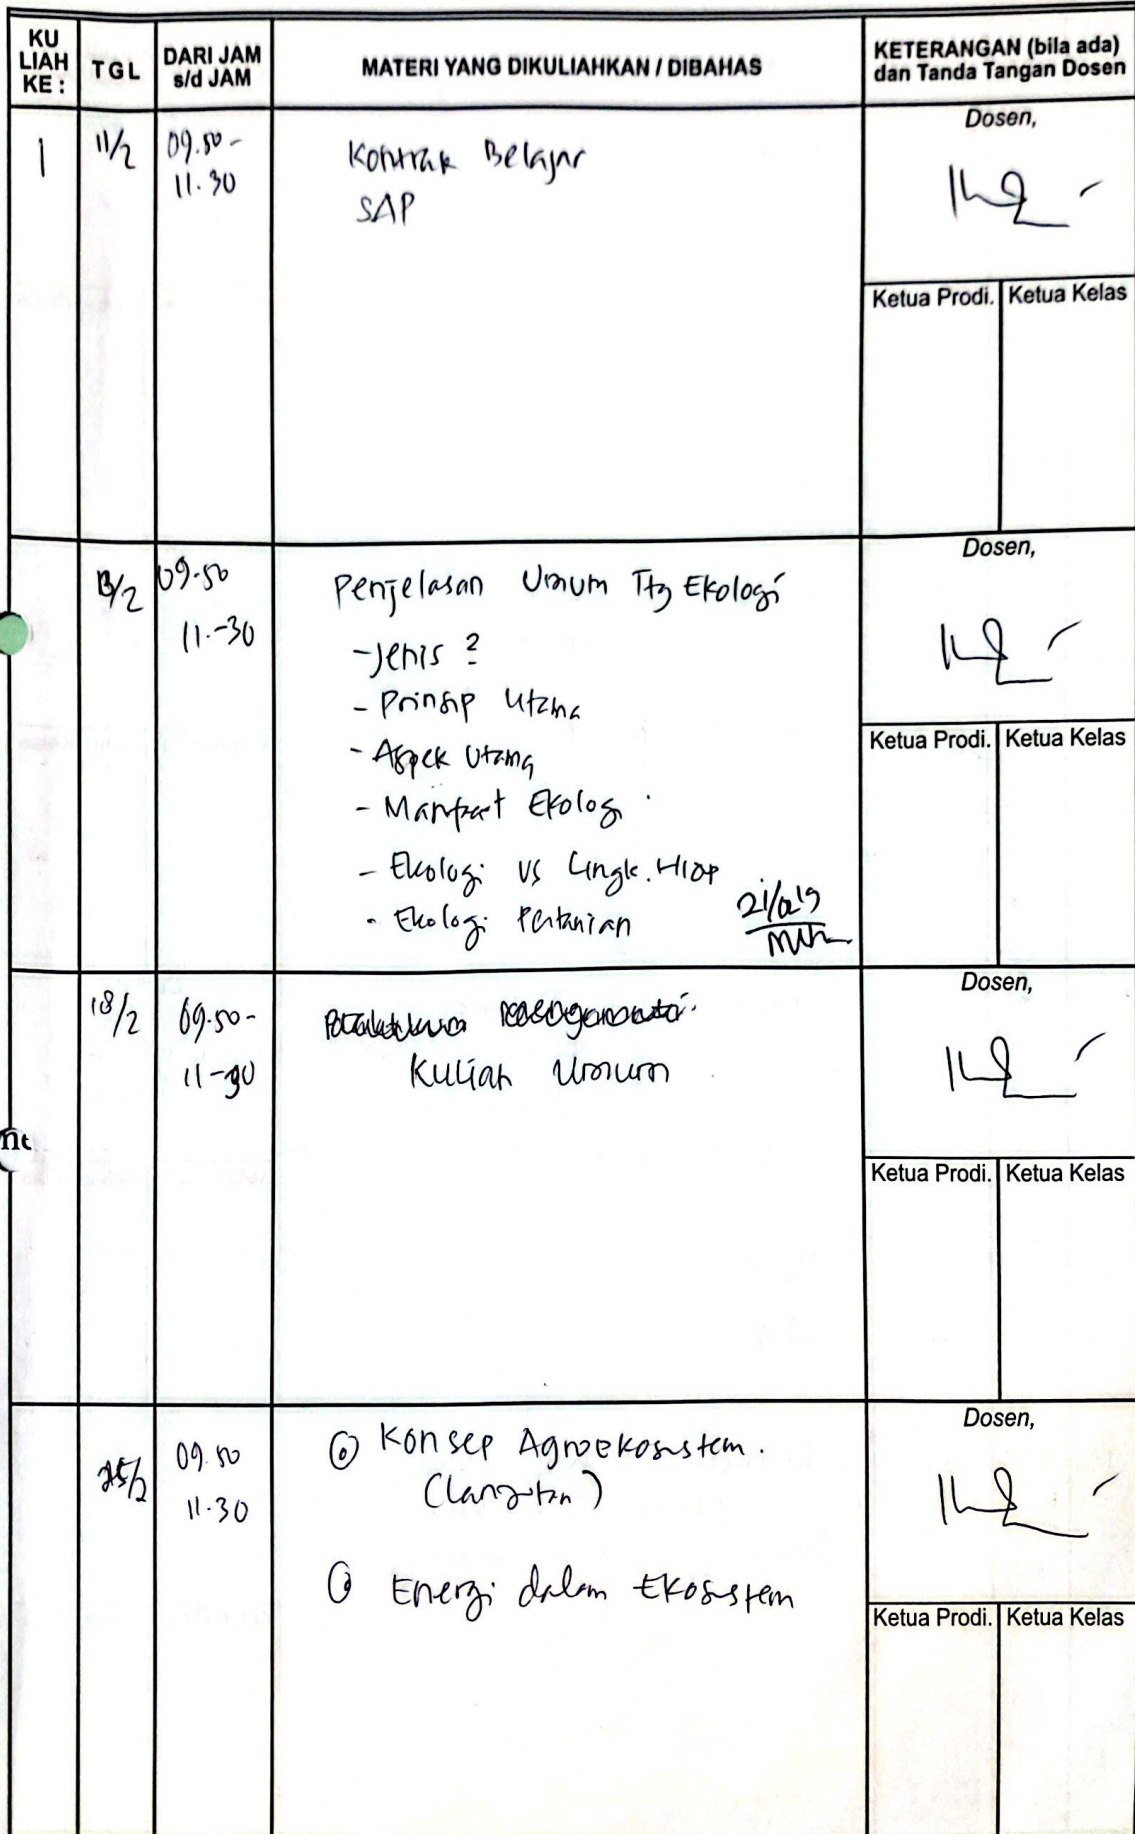 KU
LIAH
KE :
TGL
DARI JAM
s/d JAM
MATERI YANG DIKULIAHKAN / DIBAHAS
KETERANGAN (bila ada)
dan Tanda Tangan Dosen
1
11/2
09.50 -
11.30
Kontrak Belajar
SAP
Dosen,
Ketua Prodi.
Ketua Kelas
13/2
09.50
11.-30
Penjelasan Umum Ttg Ekologi
- Jenis ?
- Prinsip Utama
- Aspek Utama
- Manfaat Ekologi
- Ekologi vs Lingk. Hidp
- Ekologi Pertanian
Dosen,
Ketua Prodi.
Ketua Kelas
18/2
09.50 -
11-30
Kuliah Umum
Dosen,
Ketua Prodi.
Ketua Kelas
nt
25/2
09.50
11.30
Konsep Agroekosistem.
(Lanjutan)
Energi dalam Ekosistem
Dosen,
Ketua Prodi.
Ketua Kelas